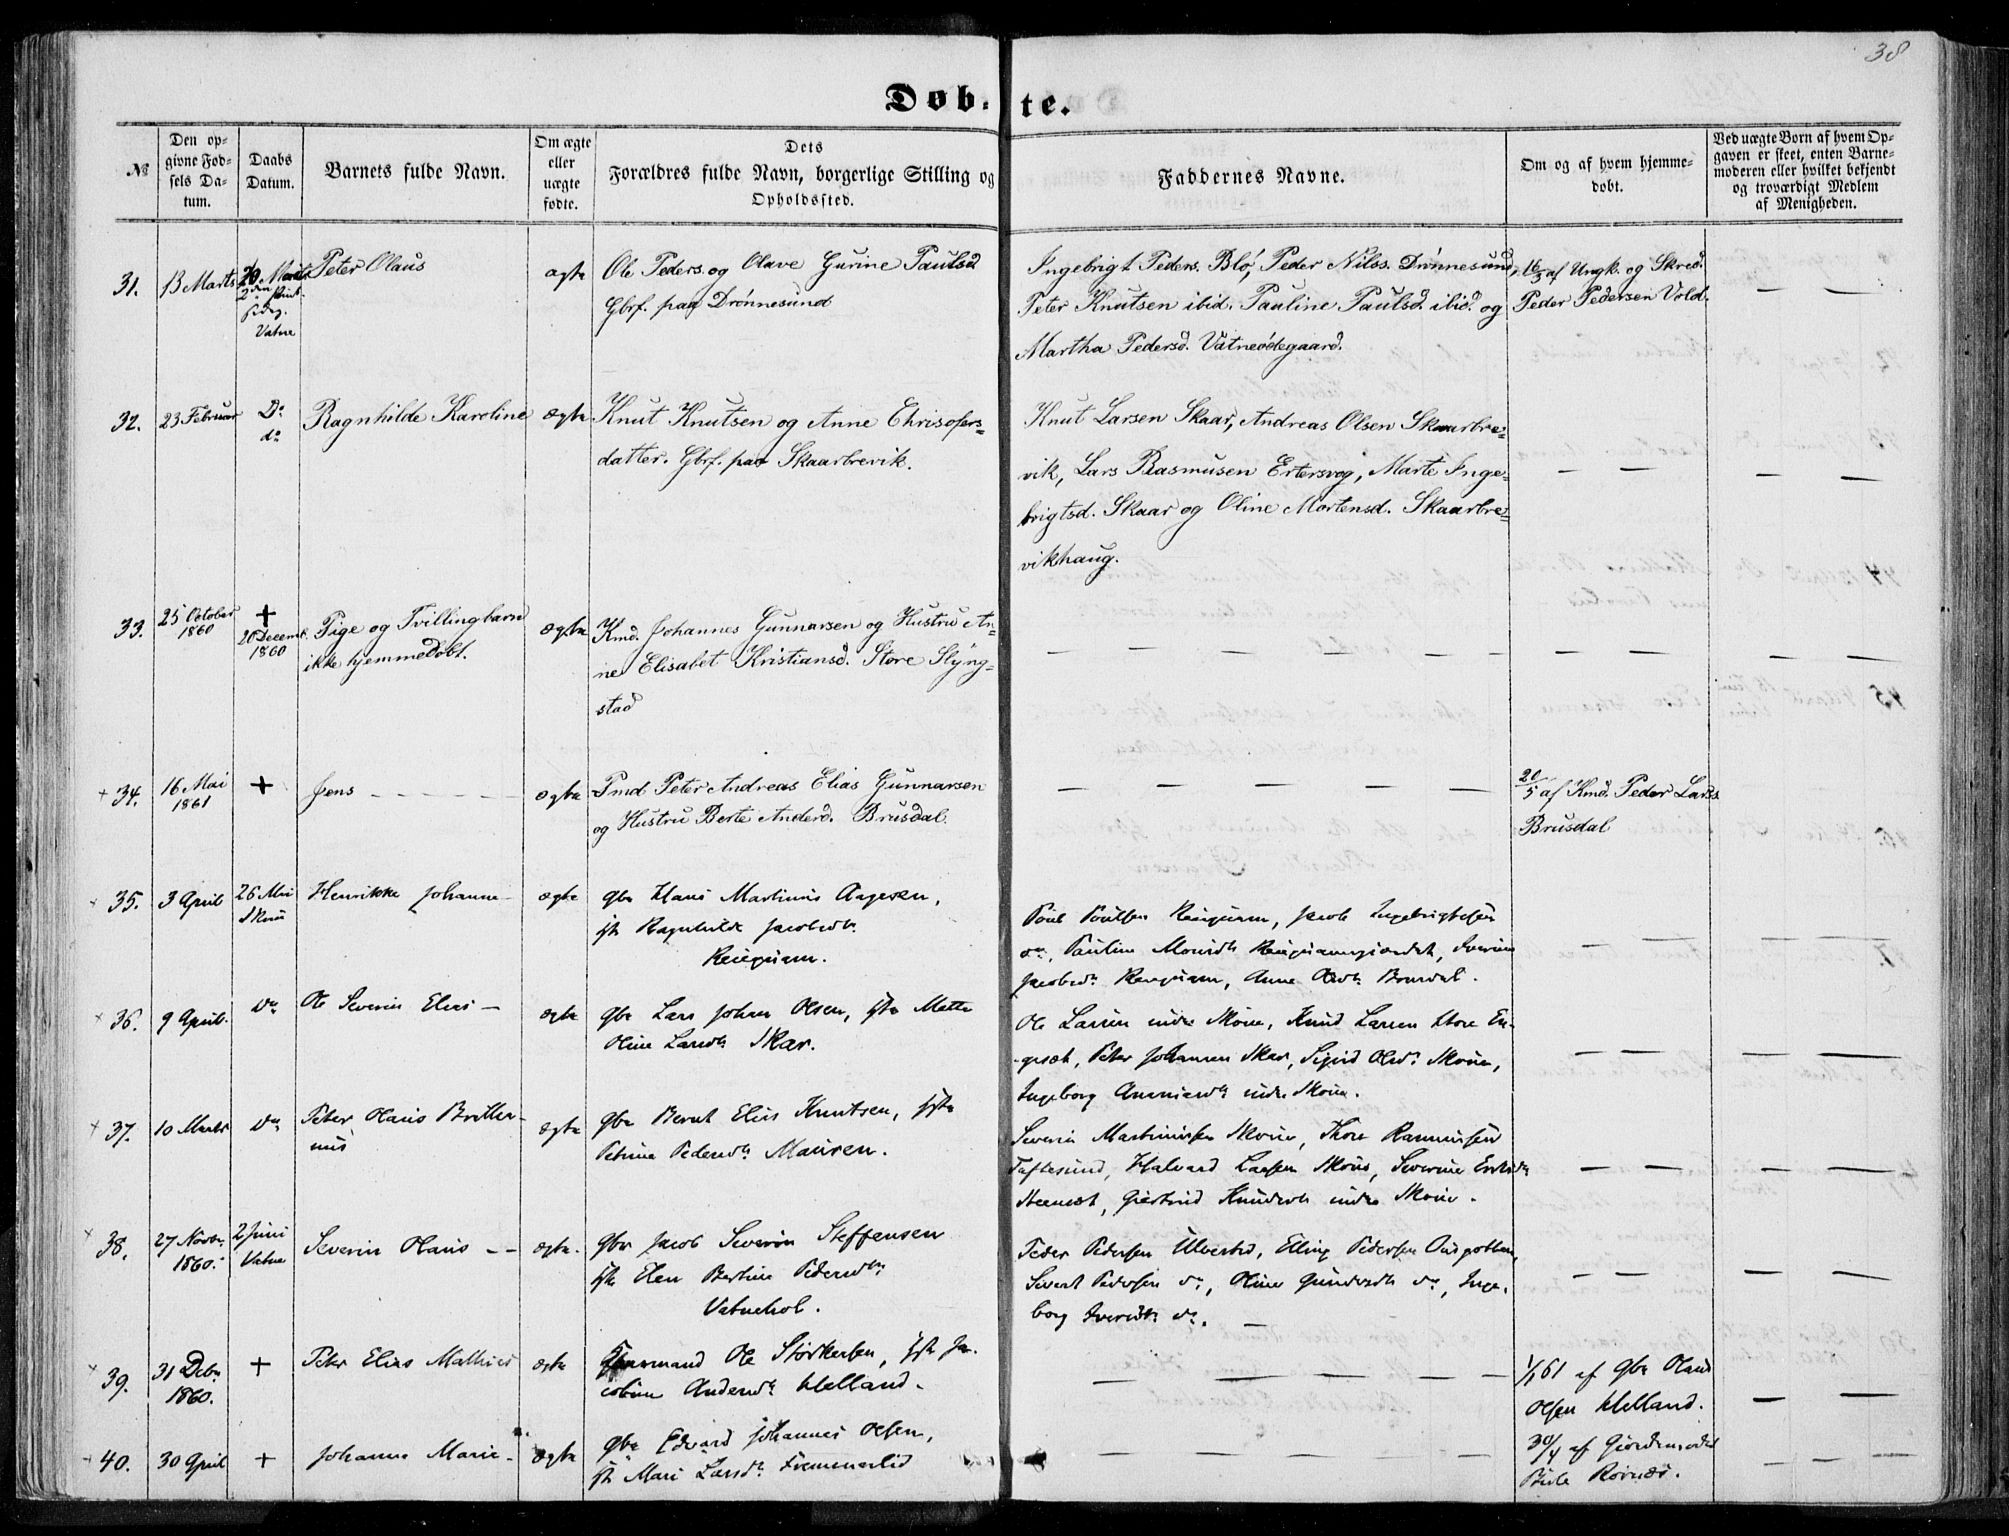 38
Døb-te.
№
Den op-
givne Fød-
sels Da-
tum.
Daabs
Datum.
Barnets fulde Navn.
Om ægte
eller
uægte
fødte.
Dets
Forældres fulde Navn, borgerlige Stilling og
Opholdssted.
Faddernes Navne.
Om og af hvem hjemme-
døbt.
Ved uægte Børn af hvem Op-
gaven er skeet, enten Barne-
moderen eller hvilket bekjendt
og troværdigt Medlem
af Menigheden.
31.
13 Marts
Vatne
Peter Olaus
ægte
Ole Peders. og Olave Gurine Paulsd
Gbrf. paa Drønnesund
Ingebrigt Peders. Blø, Peder Nilss. Drønnesund,
Peter Knutsen ibid. Pauline Paulsd. ibid. og
Martha Pedersd. Vatneødegaard.
16/3 af Ungk. og Skred.
Peder Pedersen Vold.
32.
23 Februar
Do
do
Ragnhilde Karoline
ægte
Knut Knutsen og Anne Chrisofers-
datter. Gbrf. paa Skaarbrevik.
Knut Larsen Skaar, Andreas Olsen Skaarbre-
vik, Lars Rasmusen Ertersvog, Marte Inge-
brigtsd. Skaar og Oline Mortensd. Skaarbre-
vikhaug.
33.
25 October
1860
+
20 Decemb.
1860
Pige og Tvillingbarn
ikke hjemmedøbt.
ægte
Kmd. Johannes Gunnarsen og Hustru An-
ne Elisabet Kristiansd. Store Slyng-
stad
+ 34.
16 Mai
1861
+
Jens
ægte
Pmd Peter Andreas Elias Gunnarsen
og Hustru Berte Anderd. Brusdal.
20/5 af Kmd. Peder Larss
Brusdal
35.
3 April
26 Mai
Skous
Henrikke Johanne
ægte
gbr Hans Martinus Aagesen,
hst Ragnhilde Jacobsdtr
Jacob Ingebrigtsen
do, Pauline
36.
9 April.
do
Ole Severin Elias
ægte
gbr Lars Johan Olsen, hst Mette
Oline Larsdtr Skar.
Ole Larsen indre Skous, Knud Larsen store En-
gesæt, Peter Johansen Skar, Sigrid Olsd. Skous,
Ingeborg indre Skous.
+ 37.
10 Marts
do
Peter Olaus
ægte
gbr Bernt Elias Knutsen, hst
Petrine Pedersdtr Mausen.
Severin Martinusen Skous, Thore Rasmussen
Taftesund, Halvard Larsen Skous, Severine
Giertrud Knudsdtr indre Skous.
+ 38.
27 Novbr.
1860.
2 Juni
Vatne
Severin Olaus
ægte.
gbr Jacob Severin Steffensen
hst Elen Bertine Pedersdtr
Vatnehol.
Peder Pedersen Ulvestad, Elling Pedersen
Sivert Pedersen do, Oline do, Inge-
borg Iversdtr do.
+ 39.
31 Decbr
1860.
+
Peter Elias Mathias
ægte
Ole Størkersen, hst Ja-
cobine Andersdtr Helland.
1/1 61 af gbr Olaus
Olsen Helland.
40.
30 April
+
Johanna Marie
ægte
gbr Edvard Johannes Olsen,
hst Mari Larsdtr Fremmerlid
30/4 af Giordemoder